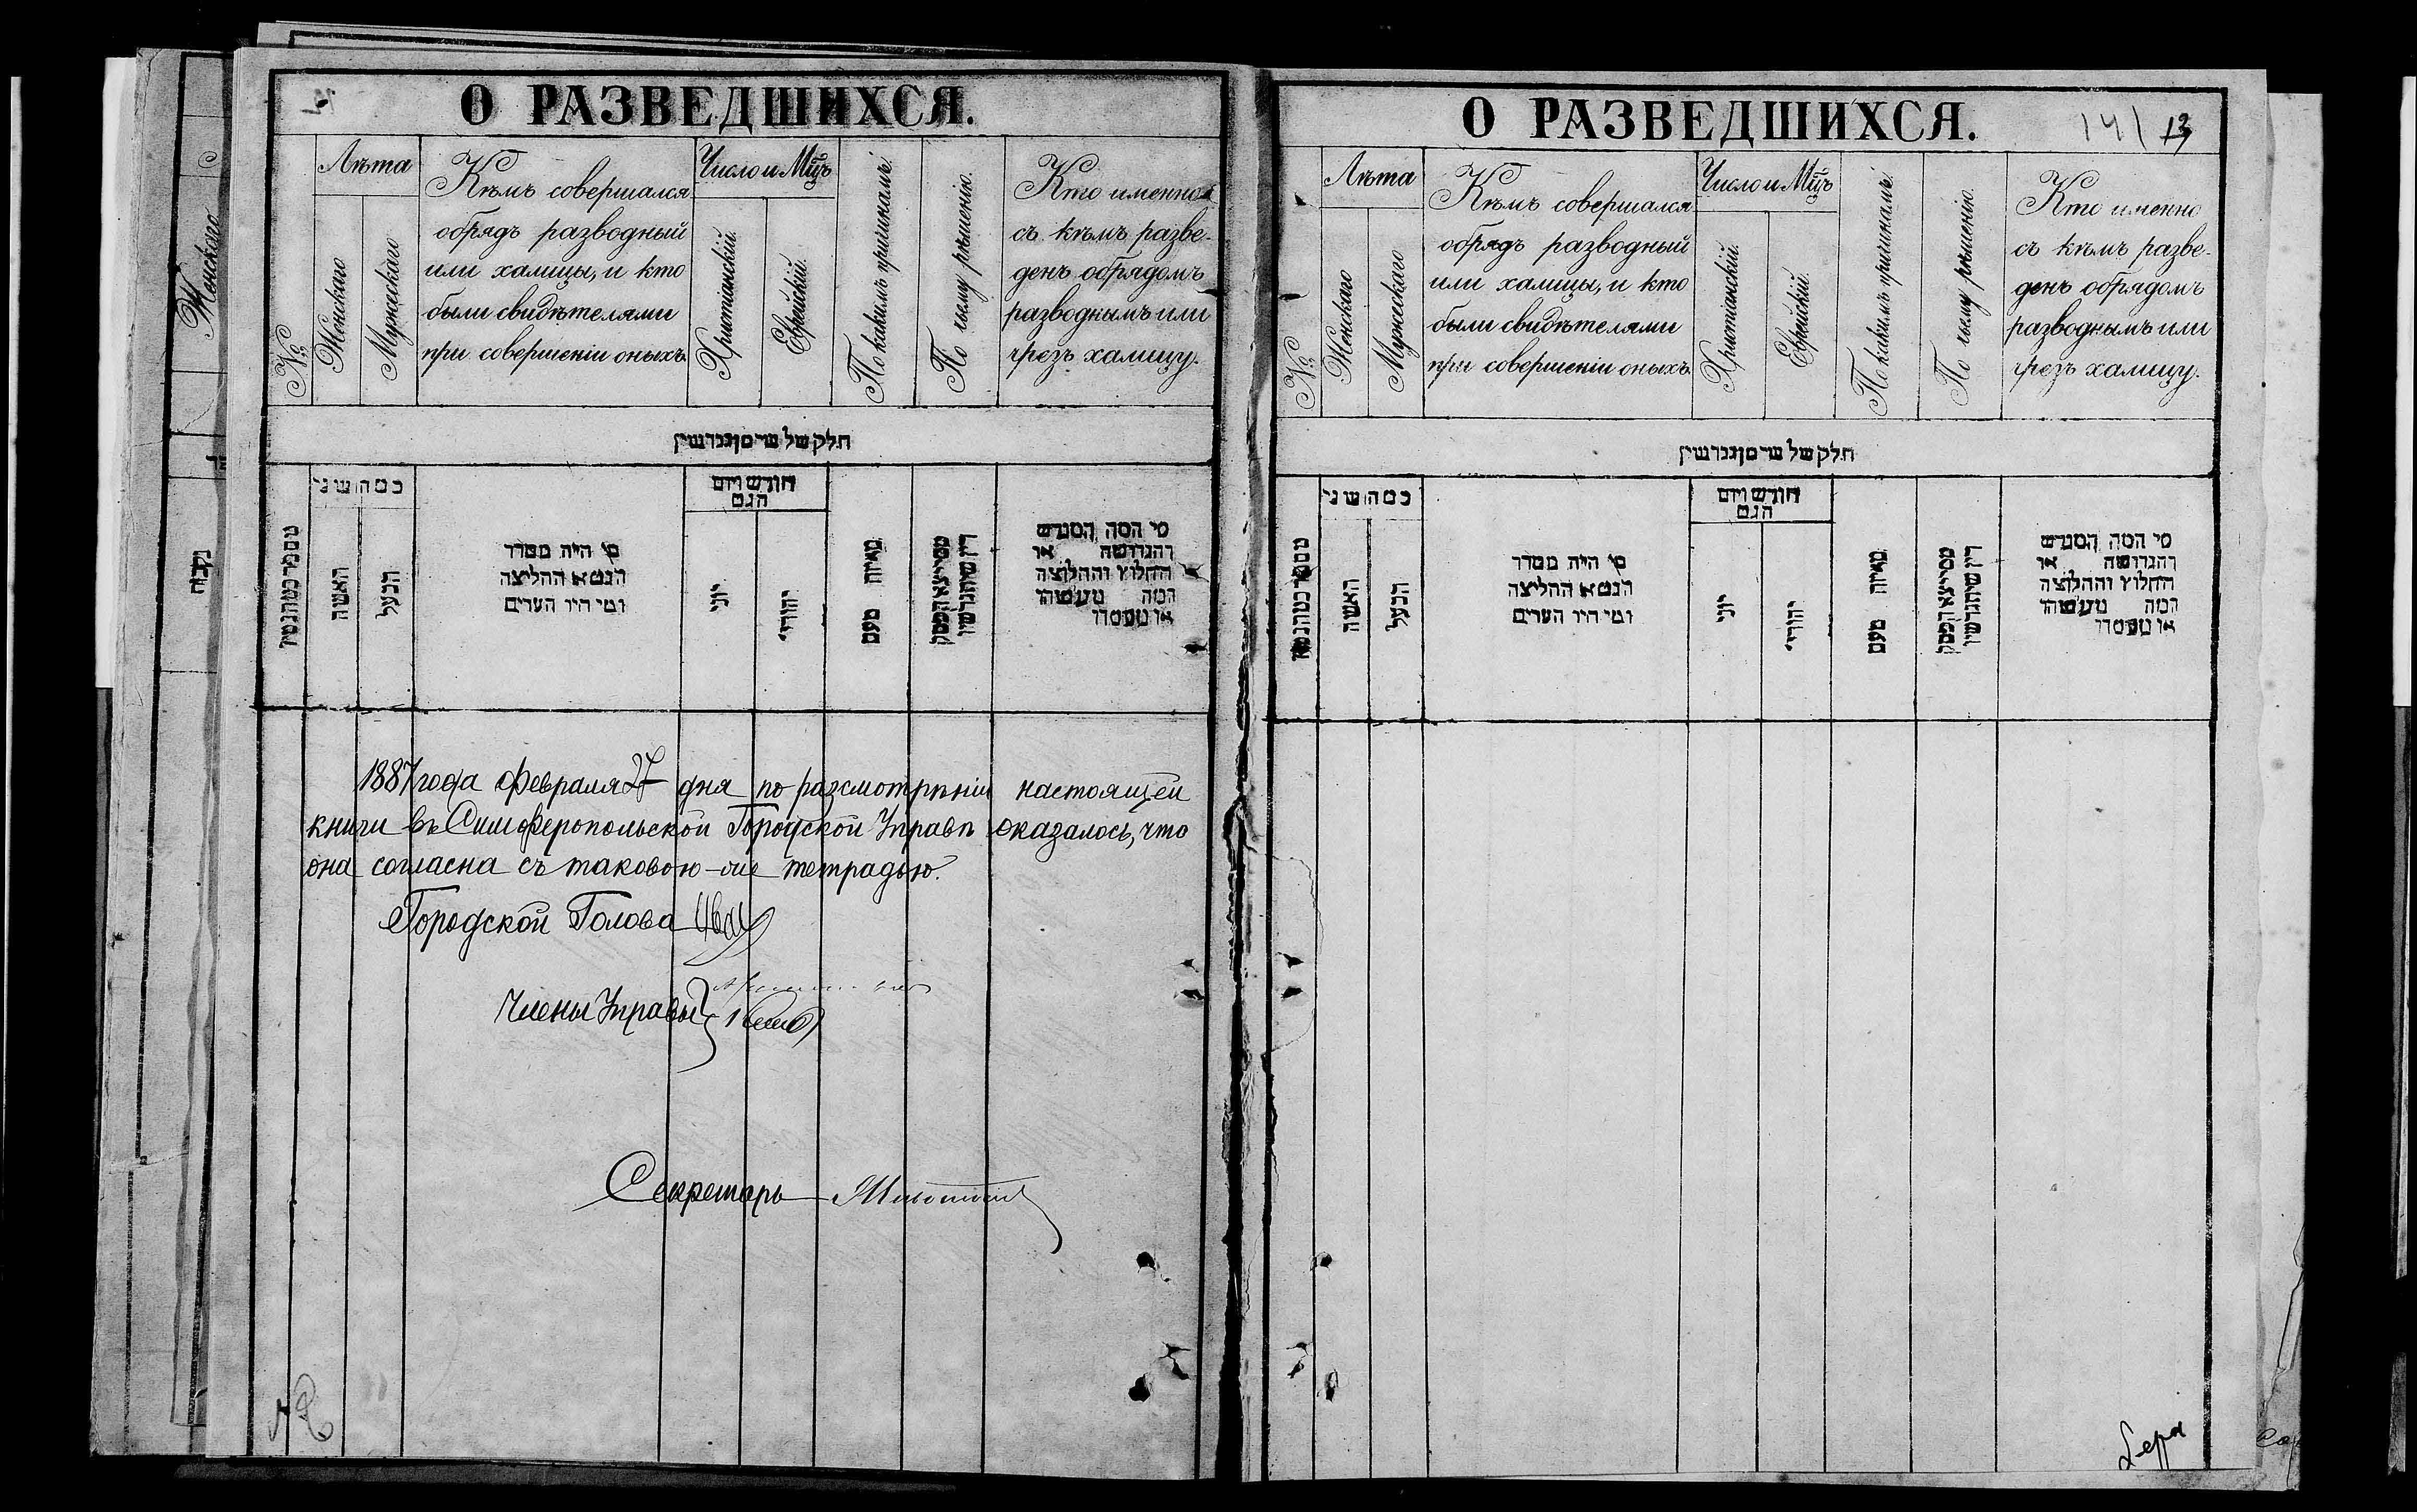 О РАЗВЕДШИХСЯ.
№
Лѣта
Женскаго
Мужескаго
Кѣмъ совершался
обрядъ разводный
или халицы, и кто
были свидѣтелями
при совершеніи оныхъ.
Число и Мц̃ъ
Христіанскій.
Еврейскій.
По какимъ причинамъ.
По чьему рѣшенію.
Кто именно
съ кѣмъ разве-
денъ обрядомъ
разводнымъ или
чрезъ халицу.
חלק של
כמה שני
האשה
הבעל
מי היה מסדר
הגט או החליצה
ומי היו העדים
חודש ויום
הגט
יוני
יהודי
מאיזה טעם
מי המה המגרש
והגרושה או
החלוץ והחלוצה
המה
1887 года Февраля 27 дня по разсмотрѣніи настоящей
книги въ Симферопольской Городской Управѣ оказалось, что
она согласна съ таковою-же тетрадью.
Городской Голова
Члены Управы
Секретарь
О РАЗВЕДШИХСЯ.
141 13
№
Лѣта
Женскаго
Мужескаго
Кѣмъ совершался
обрядъ разводный
или халицы, и кто
были свидѣтелями
при совершеніи оныхъ.
Число и Мц̃ъ
Христіанскій.
Еврейскій.
По какимъ причинамъ.
По чьему рѣшенію.
Кто именно
съ кѣмъ разве-
денъ обрядомъ
разводнымъ или
чрезъ халицу.
חלק של
כמה שני
האשה
הבעל
מי היה מסדר
הגט או החליצה
ומי היו העדים
חודש ויום
הגט
יוני
יהודי
מאיזה טעם
מי המה המגרש
והגרושה או
החלוץ והחלוצה
המה